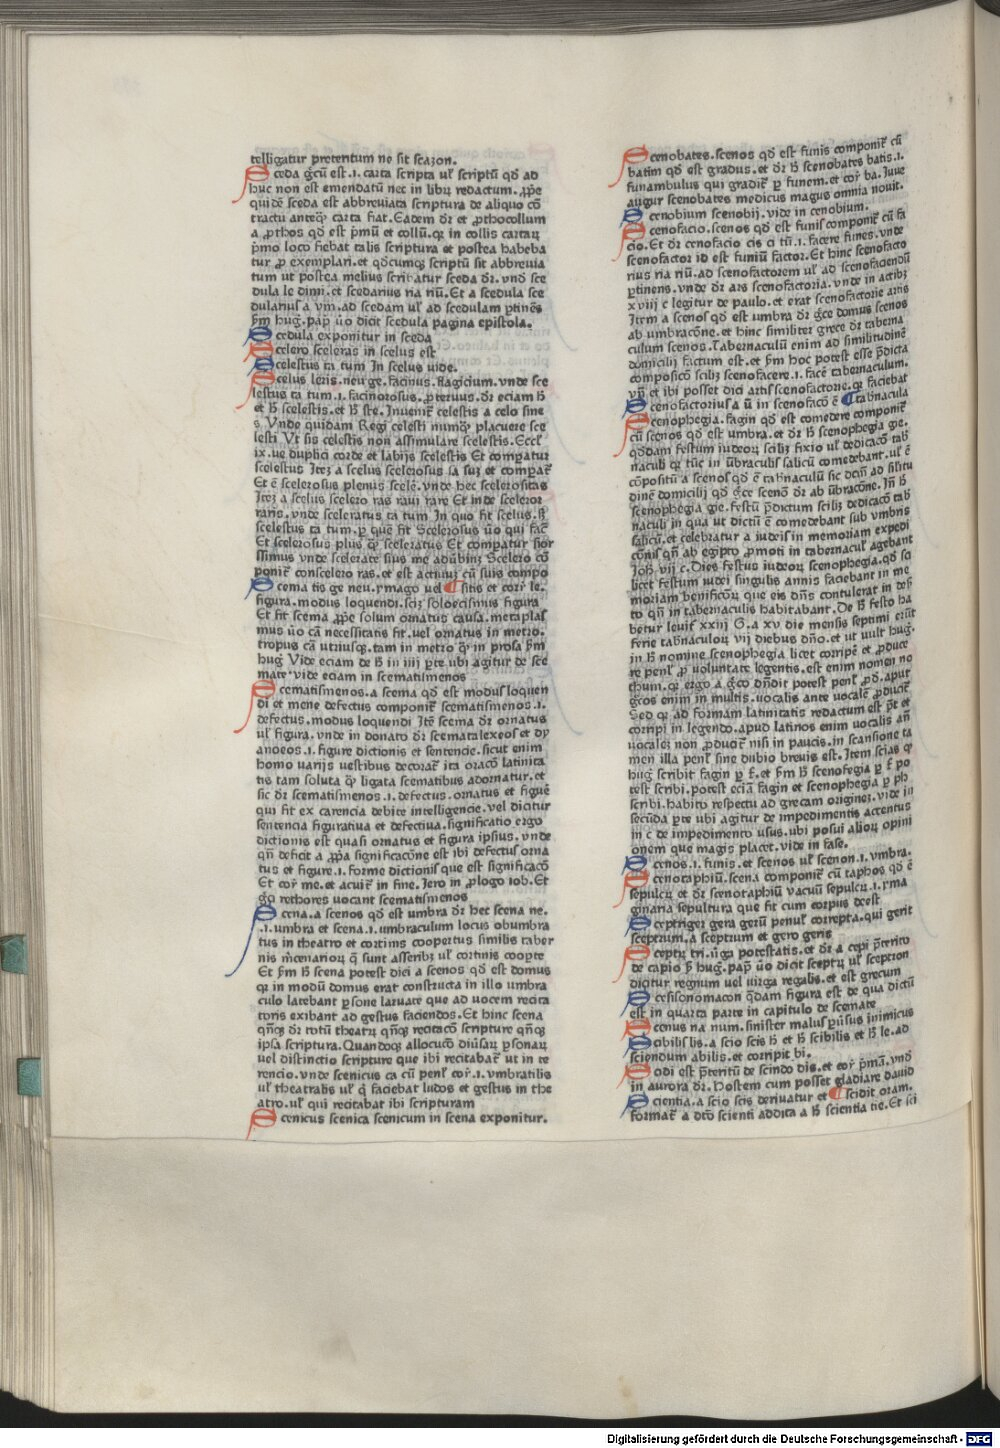 telligatur pretentum ne sit scazon.
Sceda g̃cũ est .i. carta scripta ul' scriptũ qd̃ ad
huc non est emendatũ nec in libꝝ redactum. ꝓp̃e
qui dẽ sceda est abbreuiata scriptura de aliquo cõ
tractu anteq̃ carta fiat. Eadem dr̃ et ꝓthocollum
a ꝓthos qd̃ est p̃mũ et collũ. qꝛ in collis cartaꝝ
p̃mo loco fiebat talis scriptura et postea habeba
tur ꝓ exemplari. et qd̃cumqꝫ scriptũ sit abbreuia
tum ut postea melius scribatur sceda dr̃. vnd̃ sce
dula le dimi. et scedarius ria riũ. Et a scedula sce
dularius a vm. ad scedam ul' ad scedulam ꝑtinẽs
ẜm hug̃. pap̃ ũo dicit scedula pagina epistola.
Scedula exponitur in sceda
Scelero sceleras in scelus est
Scelestus ta tum In scelus uide.
Scelus leris. neu ge. facinus. flagicium. vnde sce
lestus ta tum .i. facinorosus. ꝓteruus. dr̃ eciam h̃
et h̃ scelestis. et h̃ ste. Inuenit̃ celestis a celo sine
s. Vnde quidam Regi celesti numq̃ placuere sce
lesti Vt sis celestis non assimulare scelestis. Eccl'
ix. ue duplici corde et labijs scelestis Et compatur
scelestius Iteꝫ a scelus scelerosus sa suꝫ et compat̃
Et ẽ scelerosus plenus scelẽ. vnde hec scelerositas
Iteꝫ a scelus scelero ras raui rare Et inde sceleror
raris. vnde sceleratus ta tum In quo fit scelus. ẜꝫ
scelestus ta tum. ꝑ quẽ fit Scelerosus ũo qui fac̃
Et scelerosus plus q̃ sceleratus Et compatur sior
ssimus vnde scelerate sius me adũbinꝫ Scelero cõ
ponit̃ conscelero ras. et est actiuũ cũ suis compo
Scema tis ge neu. ymago uel ¶ sitis et corr̃ le.
figura. modus loquendi. sciꝫ soloecismus figura
Et fit scema ꝓp̃e solum ornatus causa. metaplas
mus ũo cã necessitatis fit. uel ornatus in metro.
tropus cã utriusqꝫ. tam in metro q̃ in prosa ẜm
hug̃ Vide eciam de h̃ in iiij ꝑte ubi agitur de sce
mate. vide eciam in scematismenos
Scematismenos. a scema qd̃ est modus loquen
di et mene defectus componit̃ scematismenos .i.
defectus. modus loquendi Itẽ scema dr̃ ornatus
ul' figura. vnde in donato dr̃ scemata lexeos et dy
anoeos .i. figure dictionis et sentencie. sicut enim
homo varijs uestibus decorat̃ ita oracõ latinita
tis tam soluta q̃ ligata scematibus adornatur. et
sic dr̃ scematismenos .i. defectus. ornatus et figuẽ
qui fit ex carencia debite intelligencie. vel dicitur
sentencia figuratiua et defectiua. significatio ergo
dictionis est quasi ornatus et figura ipsius. vnde
qñ deficit a ꝓp̃a significacõne est ibi defectus orna
tus et figure .i. forme dictionis que est significacõ
Et corr̃ me. et acuit̃ in fine. Iero in ꝓlogo iob. Et
go rethores uocant scematismenos
Scena. a scenos qd̃ est umbra dr̃ hec scena ne.
.i. umbra et scena .i. umbraculum locus obumbra
tus in theatro et cortinis coopertus similis taber
nis m̃cenarioꝝ q̃ sunt asseribꝫ ul' cortinis coopte
Et ẜm h̃ scena potest dici a scenos qd̃ est domus
qꝛ in modũ domus erat constructa in illo umbra
culo latebant ꝑsone laruate que ad uocem recita
toris exibant ad gestus faciendos. Et hinc scena
qñqꝫ dr̃ totũ theatrꝫ qñqꝫ recitacõ scripture qñqꝫ
ipsa scriptura. Quandoqꝫ allocucõ diũsaꝝ ꝑsonaꝝ
uel distinctio scripture que ibi recitabat̃ ut in te
rencio. vnde scenicus ca cũ penl' cor̃ .i. vmbratilis
ul' theatralis ul' q̃ faciebat ludos et gestus in the
atro. ul' qui recitabat ibi scripturam
Scenicus scenica scenicum in scena exponitur.
Scenobates. scenos qd̃ est funis componit̃ cũ
batim qd̃ est gradus. et dr̃ h̃ scenobates batis .i.
funambulus qui gradit̃ ꝑ funem. et cor̃ ba. Iuue
augur scenobates medicus magus omnia nouit.
Scenobium scenobij. vide in cenobium.
Scenofacio. scenos qd̃ est funis componit̃ cũ fa
cio. Et dr̃ cenofacio cis ci tũ .i. facere funes. vnde
scenofactor id est funiũ factor. Et hinc scenofacto
rius ria riũ. ad scenofactorem ul' ad scenofaciendũ
ꝑtinens. vnde dr̃ ars scenofactoria. vnde in actibꝫ
xviij c legitur de paulo. et erat scenofactorie artis
Item a scenos qd̃ est umbra dr̃ g̃ce domus scenos
ab umbracõne. et hinc similiter grece dr̃ taberna
culum scenos. Tabernaculũ enim ad similitudinẽ
domicilij factum est. et ẜm hoc potest esse p̃dicta
composicõ sciliꝫ scenofacere .i. facẽ tabernaculum.
vñ et ibi posset dici artis scenofactorie. qꝛ faciebat
Scenofactorius a ũ in scenofacõ ẽ ¶ tab̃nacula
Scenophegia. fagin qd̃ est comedere componit̃
cũ scenos qd̃ est umbra. et dr̃ h̃ scenophegia gie.
qd̃dam festum iudeoꝝ sciliꝫ fixio ul' dedicacõ tab̃
naculi qꝛ tũc in ũbraculis salicũ comedebant. ul' ẽ
cõpositũ a scenos qd̃ ẽ tab̃naculũ sic dcm̃ ad silitu
dinẽ domicilij qd̃ g̃ce scenõ dr̃ ab ũbracõne. In h̃
scenophegia gie. festũ p̃dictum sciliꝫ dedicacõ tab̃
naculi in qua ut dictũ ẽ comedebant sub vmbris
salicũ. et celebratur a iudeis in memoriam expedi
cõnis qñ ab egipto ꝓmoti in tabernacul' agebant
Joh̃ vij c. Dies festus iudeoꝝ scenophegia. qd̃ sci
licet festum iudei singulis annis faciebant in me
moriam beneficioꝝ que eis dñs contulerat in deẜ
to qñ in tabernaculis habitabant. De h̃ festo ha
betur leuiẜ xxiij G. a xv die mensis septimi erũt
ferie tab̃naculoꝝ vij diebus dño. et ut uult hug̃.
in h̃ nomine scenophegia licet corripẽ et ꝓduce
re penl' ꝓ voluntate legentis. est enim nomen no
thum. qꝛ ergo a g̃co dñdit potest penl' ꝓd̃. aput
g̃cos enim in multis. uocalis ante uocalẽ ꝓducit̃
Sed qꝛ ad formam latinitatis redactum est p̃t et
corripi in legendo. apud latinos enim uocalis añ
uocaleꝫ non ꝓducit̃ nisi in paucis. in scansione ta
men illa penl' sine dubio breuis est. Item scias qꝫ
hug̃ scribit fagin ꝑ f. et ẜm h̃ scenofegia ꝑ f po
test scribi. potest eciã fagin et scenophegia ꝑ ph
scribi. habito respectu ad grecam origineꝫ. vide in
secũda ꝑte ubi agitur de impedimentis accentus
in c de impedimento usus. ubi posui alioꝝ opini
onem que magis placet. vide in fase.
Scenos .i. funis. et scenos ul' scenon .i. vmbra.
Scenotaphiũ. scena componit̃ cũ taphos qd̃ ẽ
sepulcꝝ et dr̃ scenotaphiũ vacuũ sepulcꝝ .i. yma
ginaria sepultura que fit cum corpus deest
Sceptriger gera gerũ penul' correpta. qui gerit
sceptrum. a sceptrum et gero geris
Sceptꝝ tri. ũga potestatis. et dr̃ a cepi p̃terito
de capio ꝑ hug̃. pap̃ ũo dicit sceptꝝ ul' sceptron
dicitur regnum uel uirga regalis. et est grecum
Scesisonomacon q̃dam figura est de qua dictũ
est in quarta parte in capitulo de scemate
Scenus na num. sinister malus ꝑũsus inimicus
Scibilis lis. a scio scis h̃ et h̃ scibilis et h̃ le. ad
sciendum abilis. et corripit bi.
Scodi est p̃teritũ de scindo dis. et cor̃ p̃mã. vnd̃
in aurora dr̃. Hostem cum posset gladiare dauid
Scientia. a scio scis deriuatur et ¶ scidit oram.
format̃ a dt̃o scienti addita a h̃ scientia tie. Et sci
Digitalisierung gefördert durch die Deutsche Forschungsgemeinschaft - DFG